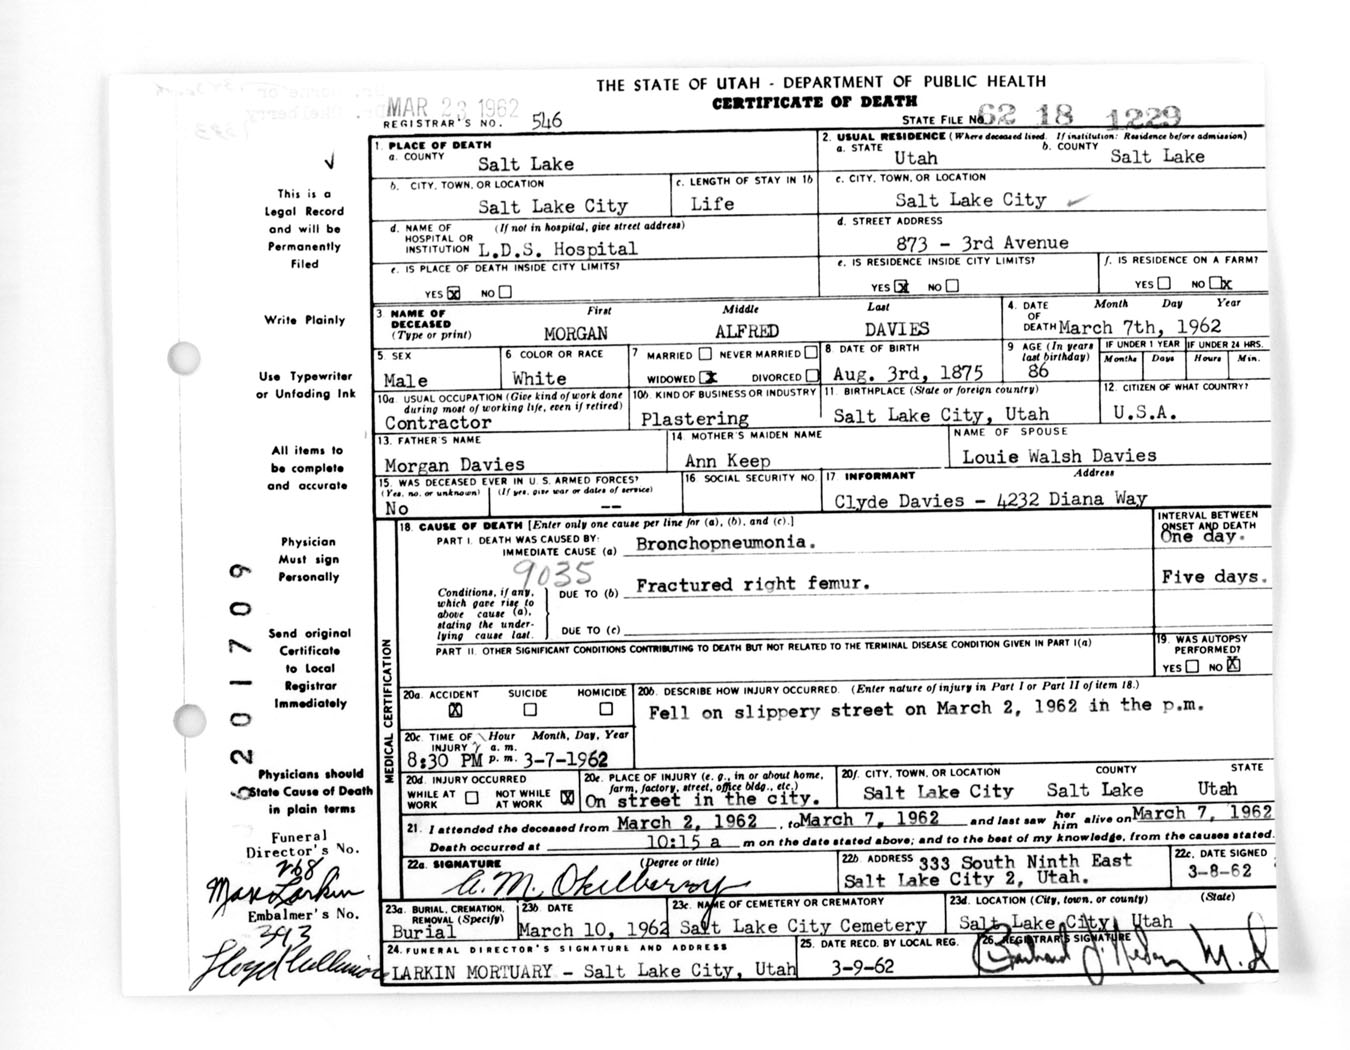 THE STATE OF UTAH - DEPARTMENT OF PUBLIC HEALTH
CERTIFICATE OF DEATH
MAR 23 1962
REGISTRAR'S NO. 546
STATE FILE NO. 62 18 1229
This is a
Legal Record
and will be
Permanently
Filed
Write Plainly
Use Typewriter
or Unfading Ink
All items to
be complete
and accurate
Physician
Must sign
Personally
Send original
Certificate
to Local
Registrar
Immediately
Physicians should
State Cause of Death
in plain terms
Funeral
Director's No.
268
Max Larkin
Embalmer's No.
393
201709
1. PLACE OF DEATH
a. COUNTY
Salt Lake
2. USUAL RESIDENCE (Where deceased lived. If institution: Residence before admission)
a. STATE
Utah
b. COUNTY
Salt Lake
b. CITY, TOWN, OR LOCATION
Salt Lake City
c. LENGTH OF STAY IN 1b
Life
c. CITY, TOWN, OR LOCATION
Salt Lake City
d. NAME OF HOSPITAL OR INSTITUTION (If not in hospital, give street address)
L.D.S. Hospital
d. STREET ADDRESS
873 - 3rd Avenue
e. IS PLACE OF DEATH INSIDE CITY LIMITS?
YES X NO
e. IS RESIDENCE INSIDE CITY LIMITS?
YES X NO
f. IS RESIDENCE ON A FARM?
YES NO x
3. NAME OF DECEASED (Type or print)
First Middle Last
MORGAN ALFRED DAVIES
4. DATE OF DEATH Month Day Year
March 7th, 1962
5. SEX
Male
6 COLOR OR RACE
White
7 MARRIED NEVER MARRIED
WIDOWED x DIVORCED
8 DATE OF BIRTH
Aug. 3rd, 1875
9 AGE (In years last birthday)
86
IF UNDER 1 YEAR IF UNDER 24 HRS.
Months Days Hours Min.
10a. USUAL OCCUPATION (Give kind of work done during most of working life, even if retired)
Contractor
10b. KIND OF BUSINESS OR INDUSTRY
Plastering
11. BIRTHPLACE (State or foreign country)
Salt Lake City, Utah
12. CITIZEN OF WHAT COUNTRY?
U.S.A.
13. FATHER'S NAME
Morgan Davies
14 MOTHER'S MAIDEN NAME
Ann Keep
NAME OF SPOUSE
Louie Walsh Davies
15. WAS DECEASED EVER IN U. S. ARMED FORCES?
(Yes, no, or unknown) (If yes, give war or dates of service)
No --
16 SOCIAL SECURITY NO.
17 INFORMANT Address
Clyde Davies - 4232 Diana Way
MEDICAL CERTIFICATION
18. CAUSE OF DEATH [Enter only one cause per line for (a), (b), and (c).]
INTERVAL BETWEEN ONSET AND DEATH
PART I. DEATH WAS CAUSED BY:
IMMEDIATE CAUSE (a) Bronchopneumonia.
One day.
9035
Conditions, if any, which gave rise to above cause (a), stating the underlying cause last.
DUE TO (b) Fractured right femur.
Five days.
DUE TO (c)
PART II. OTHER SIGNIFICANT CONDITIONS CONTRIBUTING TO DEATH BUT NOT RELATED TO THE TERMINAL DISEASE CONDITION GIVEN IN PART I(a)
19. WAS AUTOPSY PERFORMED?
YES NO X
20a. ACCIDENT SUICIDE HOMICIDE
X
20b. DESCRIBE HOW INJURY OCCURRED. (Enter nature of injury in Part I or Part II of item 18.)
Fell on slippery street on March 2, 1962 in the p.m.
20c. TIME OF INJURY Hour a. m. p. m. Month, Day, Year
8:30 PM 3-7-1962
20d. INJURY OCCURRED
WHILE AT WORK NOT WHILE AT WORK X
20e. PLACE OF INJURY (e. g., in or about home, farm, factory, street, office bldg., etc.)
On street in the city.
20f. CITY, TOWN, OR LOCATION COUNTY STATE
Salt Lake City Salt Lake Utah
21. I attended the deceased from March 2, 1962, to March 7, 1962 and last saw her him alive on March 7, 1962
Death occurred at 10:15 a m on the date stated above; and to the best of my knowledge, from the causes stated.
22a. SIGNATURE (Degree or title)
A. M. Okelberry
22b. ADDRESS 333 South Ninth East
Salt Lake City 2, Utah.
22c. DATE SIGNED
3-8-62
23a. BURIAL, CREMATION, REMOVAL (Specify)
Burial
23b. DATE
March 10, 1962
23c. NAME OF CEMETERY OR CREMATORY
Salt Lake City Cemetery
23d. LOCATION (City, town, or county) (State)
Salt Lake City, Utah
24. FUNERAL DIRECTOR'S SIGNATURE AND ADDRESS
LARKIN MORTUARY - Salt Lake City, Utah
25. DATE RECD. BY LOCAL REG.
3-9-62
26. REGISTRAR'S SIGNATURE